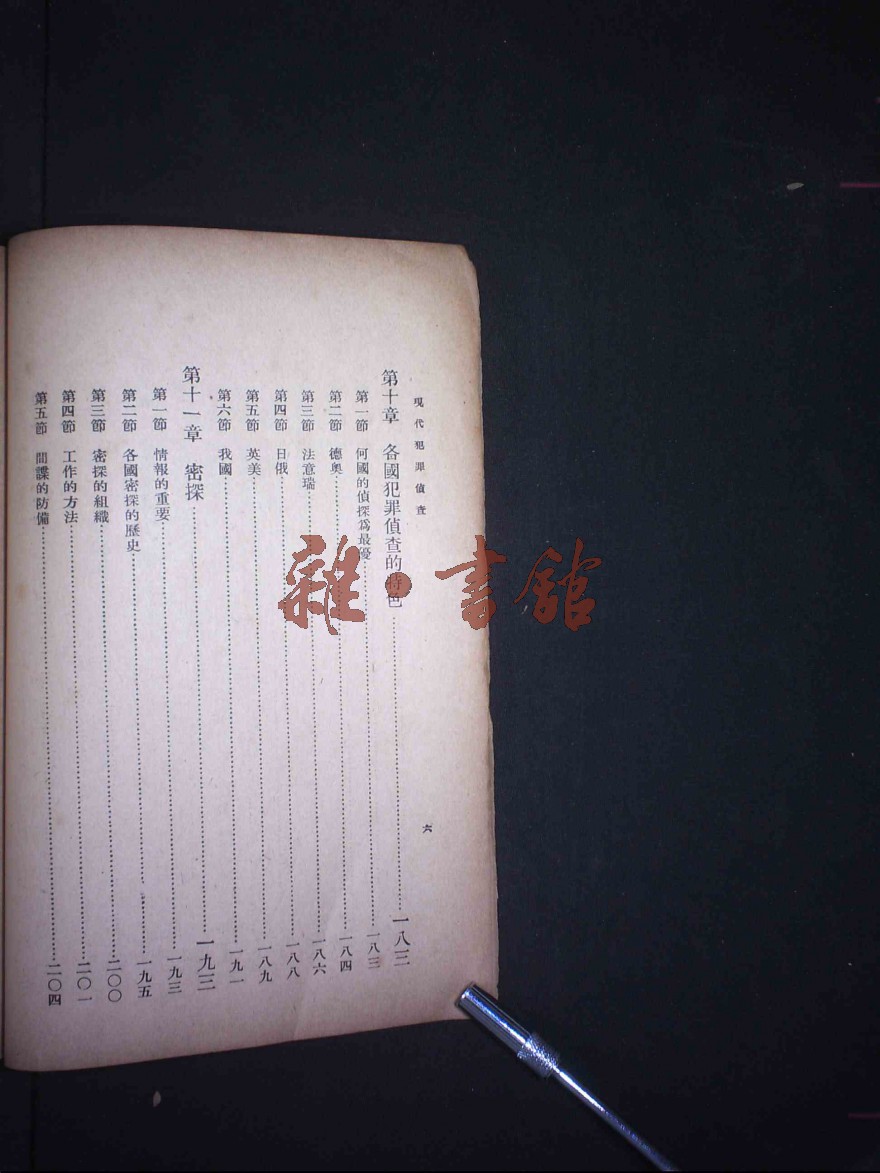 現代犯罪偵查
六
第十章 各國犯罪偵查的特色……一八三
第一節 何國的偵探爲最優……一八三
第二節 德奥……一八四
第三節 法意瑞……一八六
第四節 日俄……一八八
第五節 英美……一八九
第六節 我國……一九一
第十一章 密探……一九三
第一節 情報的重要……一九三
第二節 各國密探的歷史……一九五
第三節 密探的組織……二〇〇
第四節 工作的方法……二〇一
第五節 間諜的防備……二〇四
雜·書館